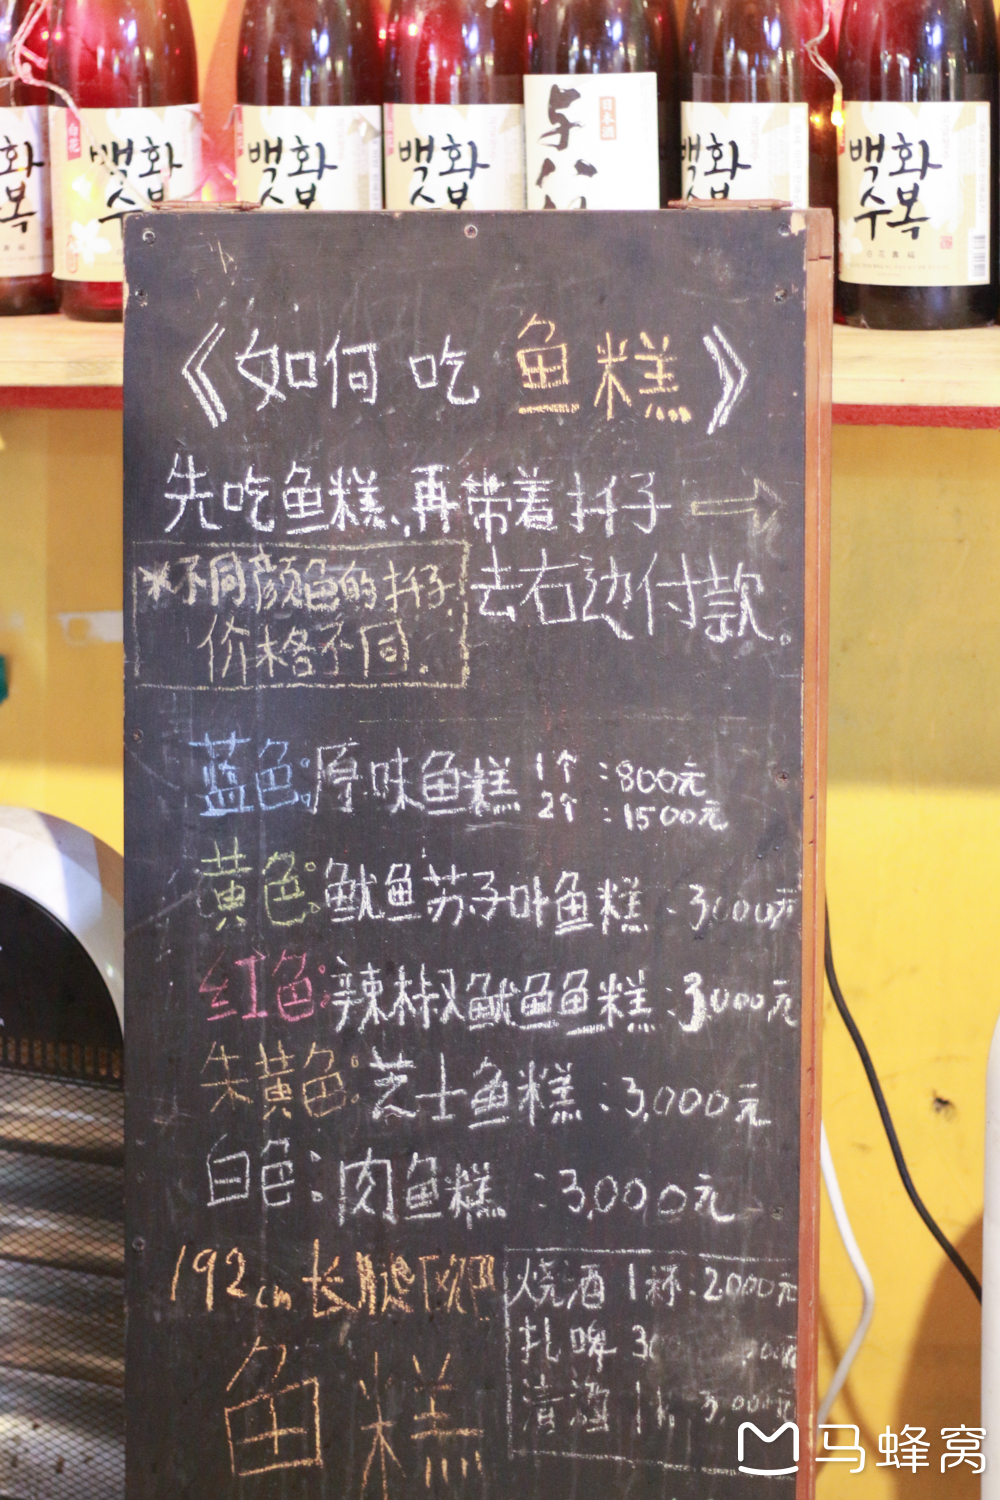 백화수복
백화수복
白花
백화수복
백화수복
与八
日本酒
백화
백화수복
白花壽福
《如何吃鱼糕》
先吃鱼糕.再带着扦子→
去右边付款。
*不同颜色的扦子
价格不同.
蓝色:原味鱼糕 1个:800元
2个:1500元
黄色:鱿鱼苏子叶鱼糕:3000元
红色:辣椒鱿鱼鱼糕:3,000元
朱黄色:芝士鱼糕:3,000元
白色:肉鱼糕:3,000元
192cm长腿欧巴
鱼糕
烧酒 1杯:2000元
扎啤
清酒 3,000元
马蜂窝